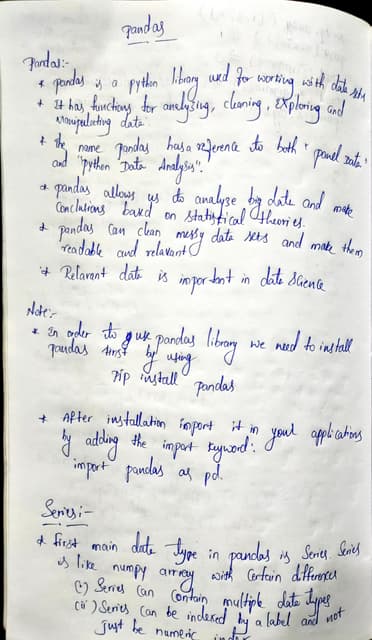 pandas
Pandas:-
* pandas is a python library used for working with data sets
* It has functions for analysing, cleaning, Exploring and
Manipulating data
* the name Pandas has a reference to both "panel Data"
and "python Data Analysis".
* pandas allows us to analyse big data and make
Conclusions based on statistical theories.
* pandas can clean messy data sets and make them
readable and relavant
* Relavant data is important in data Science
Note:-
* In order to use pandas library we need to install
pandas first by using
Pip install pandas
* After installation import it in your applications
by adding the import keyword:
import pandas as pd.
Series:-
* First main data type in pandas is Series Series
is like numpy array with Certain differences
(i) Series Can Contain multiple data types
(ii) Series Can be indexed by a label and not
just be numeric index